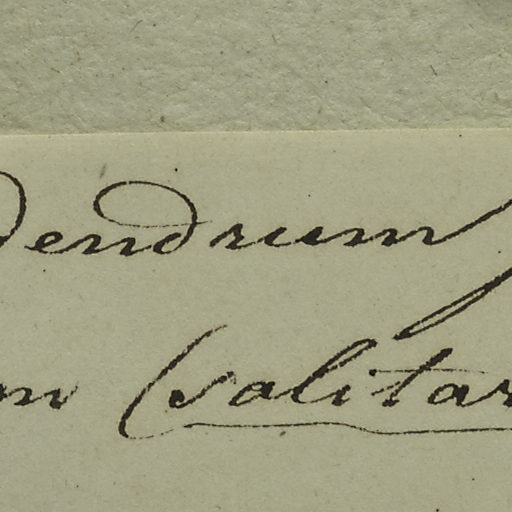 dendrum
m (salitar